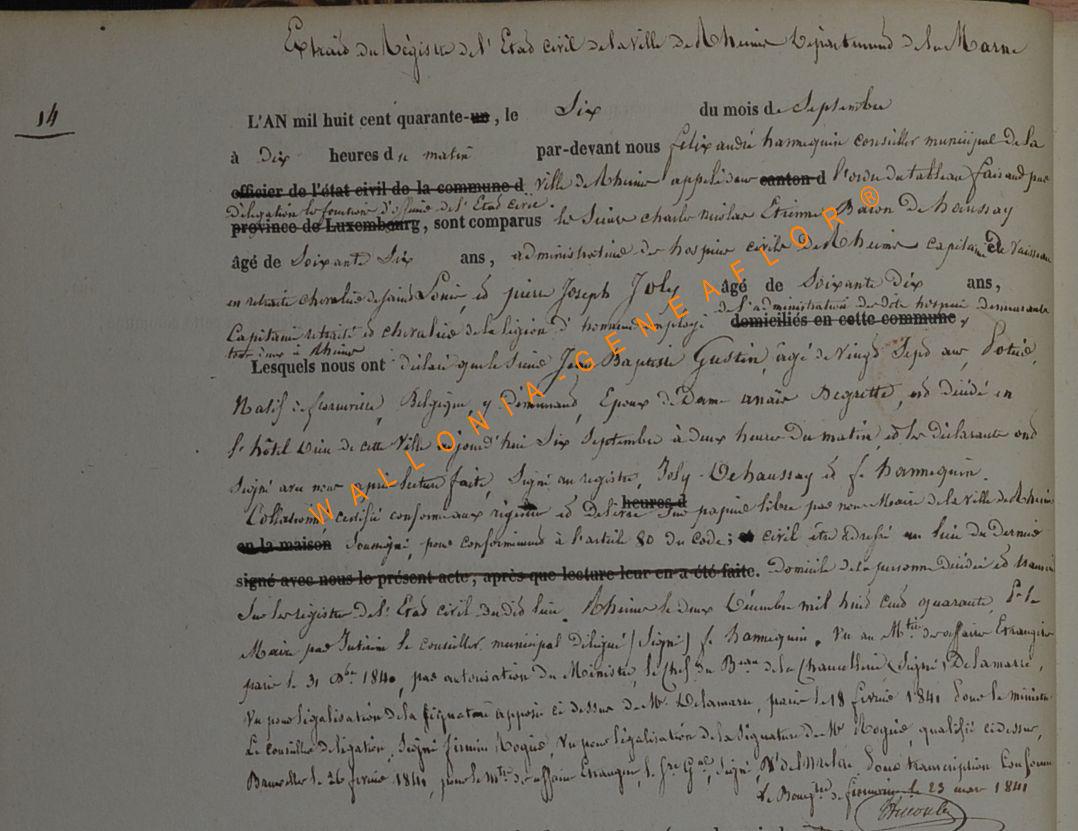 Extrait du Régistre de l'Etat civil de la ville de Rheims Département de la Marne
14
L'AN mil huit cent quarante-un, le Six du mois de Septembre
à Dix heures du matin par-devant nous felix andré hannequin conseiller municipal de la
officier de l'état civil de la commune d ville de Rheims appelé dans canton d l'ordre du tableau faisant par
délégation les fonctions d'officier de l'Etat civil.
province de Luxembourg, sont comparus les Sieurs charles nicolas Etienne Baron Dehaussay
âgé de Soixante Six ans, administrateur des hospices civils De Rheims capitaine de vaisseau
en retraite chevalier de saint Louis et pierre Joseph Joly âgé de Soixante dix ans,
Capitaine retraité et chevalier de la légion d'honneur employé de l'administration des dits hospices demeurants
domiciliés en cette commune
tous deux à Rheims
Lesquels nous ont déclaré que le Sieur Jean Baptiste Gustin, âgé de Vingt Sept ans, Potier,
Natif de florenville, Belgique, y demeurant, Epoux de Dame anaïs Degrette, est décédé en
l'hôtel Dieu de cette Ville aujourd'hui Six Septembre à deux heures du matin, et les déclarants ont
Signé avec nous après lecture faite, Signé au registre, Joly - Dehaussay et f. hannequin.
Collationné, certifié conforme aux registres et Délivré heures d Sur papier libre par nous Maire de la ville de Rheims
en la maison Soussigné, pour conformément à l'article 80 du Code; civil être adressé au lieu du dernier
signé avec nous le présent acte, après que lecture leur en a été faite. Domicile de la personne Décédée et transcrit
Sur les registres de l'Etat civil du dit lieu. Rheims le deux Décembre mil huit cent quarante, Pr le
Maire par Intérim le conseiller municipal délégué (Signé) f. hannequin. Vu au Mtère des affaires Etrangères
paris le 31 Xbre 1840, par autorisation du Ministre, le Chef du Bureau de la Chancellerie (Signé) Delamarre,
Vu pour légalisation de la signature apposée ci dessus de Mr Delamarre, paris le 18 février 1841 pour le ministre
Le conseiller de légation, Signé firmin Rogier Vu pour légalisation de la Signature de Mr Rogier, qualifié ci dessus,
Bruxelles le 26 février 1841, pour le Mtre des affaires Etrangères, le Sre Gal, Signé, Pour transcription Conforme
Le Bourgtre de florenville, le 23 mars 1841
WALLONIA-GENEAFLOR®